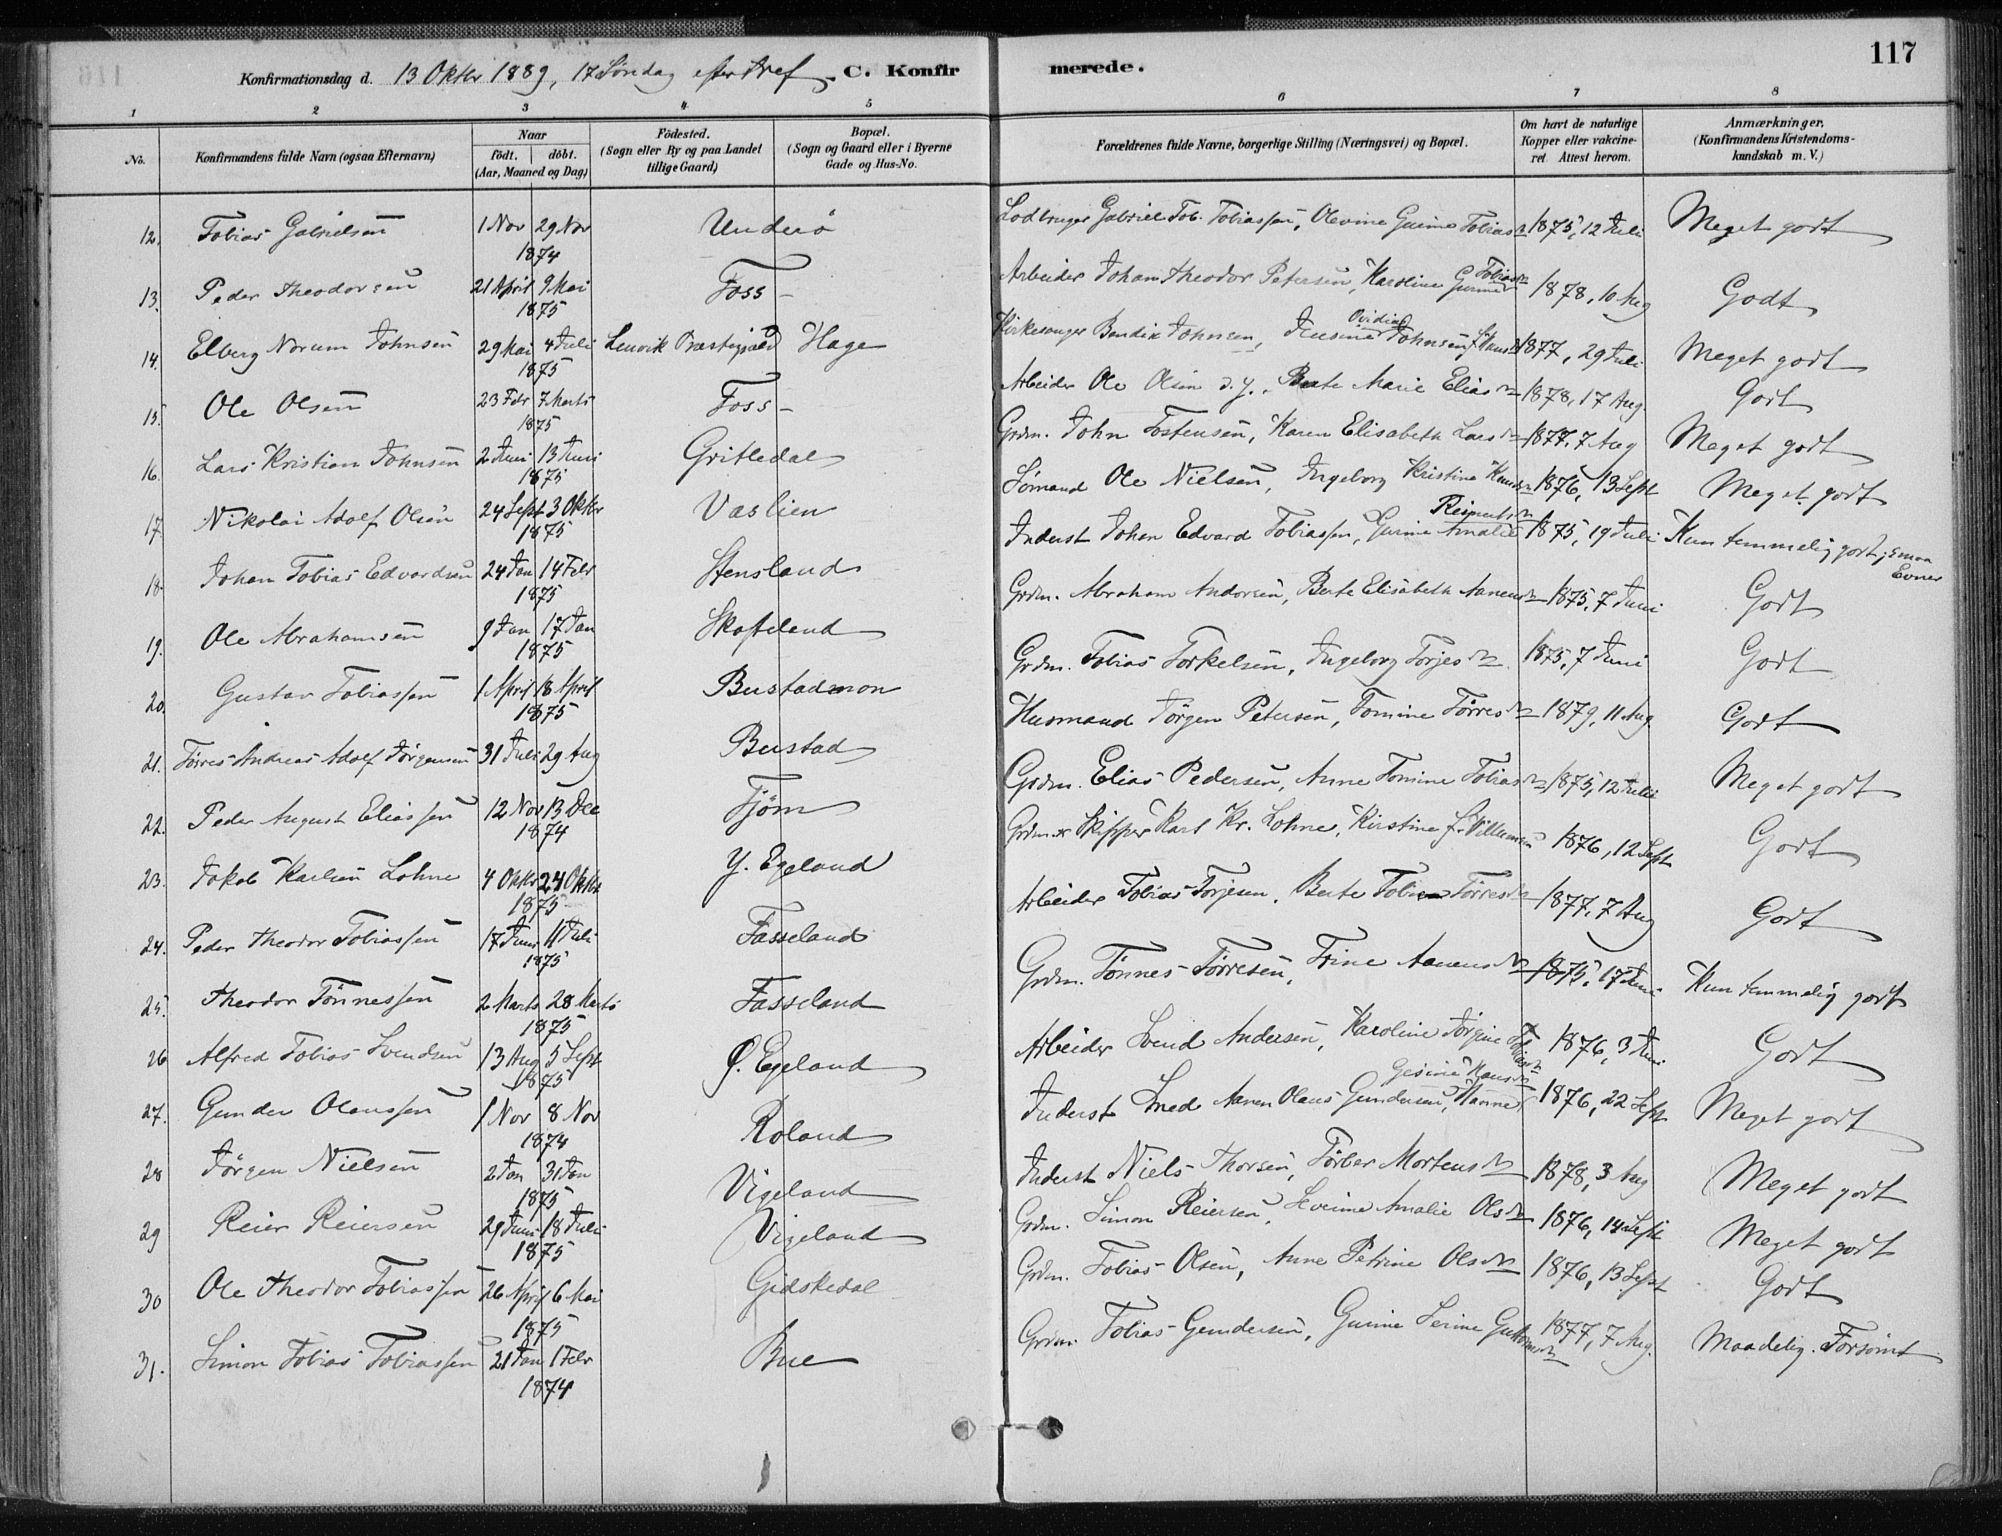 117
Konfirmationsdag d. 13 Oktbr 1889, 17 Søndag efter Tref. C. Konfirmerede.
1 2 3 4 5 6 7 8
No.
Konfirmandens fulde Navn (ogsaa Efternavn)
Naar
födt. döbt.
(Aar, Maaned og Dag)
Födested.
(Sogn eller By og paa Landet
tillige Gaard)
Bopæl.
(Sogn og Gaard eller i Byerne
Gade og Hus-No.
Forældrenes fulde Navne, borgerlige Stilling (Næringsvei) og Bopæl.
Om havt de naturlige
Kopper eller vakcine-
ret Attest herom.
Anmærkninger.
(Konfirmandens Kristendoms-
kundskab m. V.)
12. Tobias Gabrielsen 1 Nov 29 Nov 1874 Underö Gabriel Tob. Tobiassen, Olevine Gurine Tobiasd 1875, 12 Juli Meget godt
13. Peder Theodorsen 21 April 9 Mai 1875 Foss Arbeider Johan Theodor Petersen, Karoline Gurine Tobiasd 1878, 10 Aug Godt
14. Elberg Norum Johnsen 29 Mai 4 Juli 1875 Lenvik Præstegjæld Hage Kirkesanger Bendix Johnsen, Ovidia Johnsen f. 1877, 29 Juli Meget godt
15. Ole Olsen 23 Febr 7 Marts 1875 Foss Arbeider Ole Olsen d. y., Berte Marie Eliasd 1878, 17 Aug. Godt
16. Lars Kristian Johnsen 2 Juni 13 Juni 1875 Gritledal Grdm. John Tostensen, Karen Elisabeth Larsd 1877, 7 Aug Meget godt
17. Nikolai Adolf Olsen 24 Sept 3 Oktbr 1875 Vaslien Sømand Ole Nielsen, Ingeborg Kristine Hansd 1876, 13 Sept Meget godt
18. Johan Tobias Edvardsen 24 Jan 14 Febr 1875 Stensland Inderst Johan Edvard Tobiassen, Gurine Amalie Reiertsd 1875, 19 Juli Kun temmelig godt, smaa Evner
19. Ole Abrahamsen 9 Jan 17 Jan 1875 Skofteland Grdm. Abraham Andersen, Berte Elisabeth Aanensd 1875, 7 Juni Godt
20. Gustav Tobiassen 1 April 18 April 1875 Bustadmon Grdm. Tobias Torkelsen, Ingeborg Torjesd 1875, 7 Juni Godt
21. Törres Andreas Adolf Jörgensen 31 Juli 29 Aug Bustad Husmand Jörgen Petersen, Tomine Törresd 1879, 11 Aug Godt
22. Peder August Eliassen 12 Nov 13 Dec 1874 Tjöm Grdm. Elias Pedersen, Anne Tomine Tobiasd 1875, 12 Juli Meget godt
23. Jakob Karlsen Lohne 4 Oktbr 24 Oktbr 1875 Y. Egeland Grdm. & Skipper Karl Kr. Lohne, Kirstine f. Villumsen 1876, 12 Sept Godt
24. Peder Theodor Tobiassen 17 Juni 11 Juli 1875 Fasseland Arbeider Tobias Torjesen, Berte Törresd 1877, 7 Aug Godt
25. Theodor Tönnessen 2 Marts 28 Marts 1875 Fasseland Grdm. Tönnes Törresen, Trine Aanensd 1875, 17 Juni Kun temmelig godt
26 Alfred Tobias Svendsen 13 Aug 5 Sept 1875 Ø. Egeland Arbeider Svend Andersen, Karoline Jörgine Tobiasd 1876, 3 Juni Godt
27. Gunder Olaussen 1 Nov 8 Nov 1874 Roland Inderst Smed Aanen Olaus Gundersen, Hanne Gesine Hansd 1876, 22 Sept Meget godt
28 Jörgen Nielsen 2 Jan 31 Jan 1875 Vigeland Inderst Niels Thorsen, Törber Mortensd 1878, 3 Aug Meget godt
29 Reier Reiersen 29 Juni 18 Juli 1875 Vigeland Grdm. Simon Reiersen, Severine Amalie Olsd 1876, 14 Sept Meget godt
30 Ole Theodor Tobiassen 26 April 6 Mai 1875 Gidskedal Grdm. Tobias Olsen, Anne Petrine Olsd 1876, 13 Sept Godt
31. Simon Tobias Tobiassen 21 Jan 1 Febr 1874 Bue Grdm. Tobias Gundersen, Gurine Serine Guttormsd 1877, 7 Aug. Maadelig. Forsømt